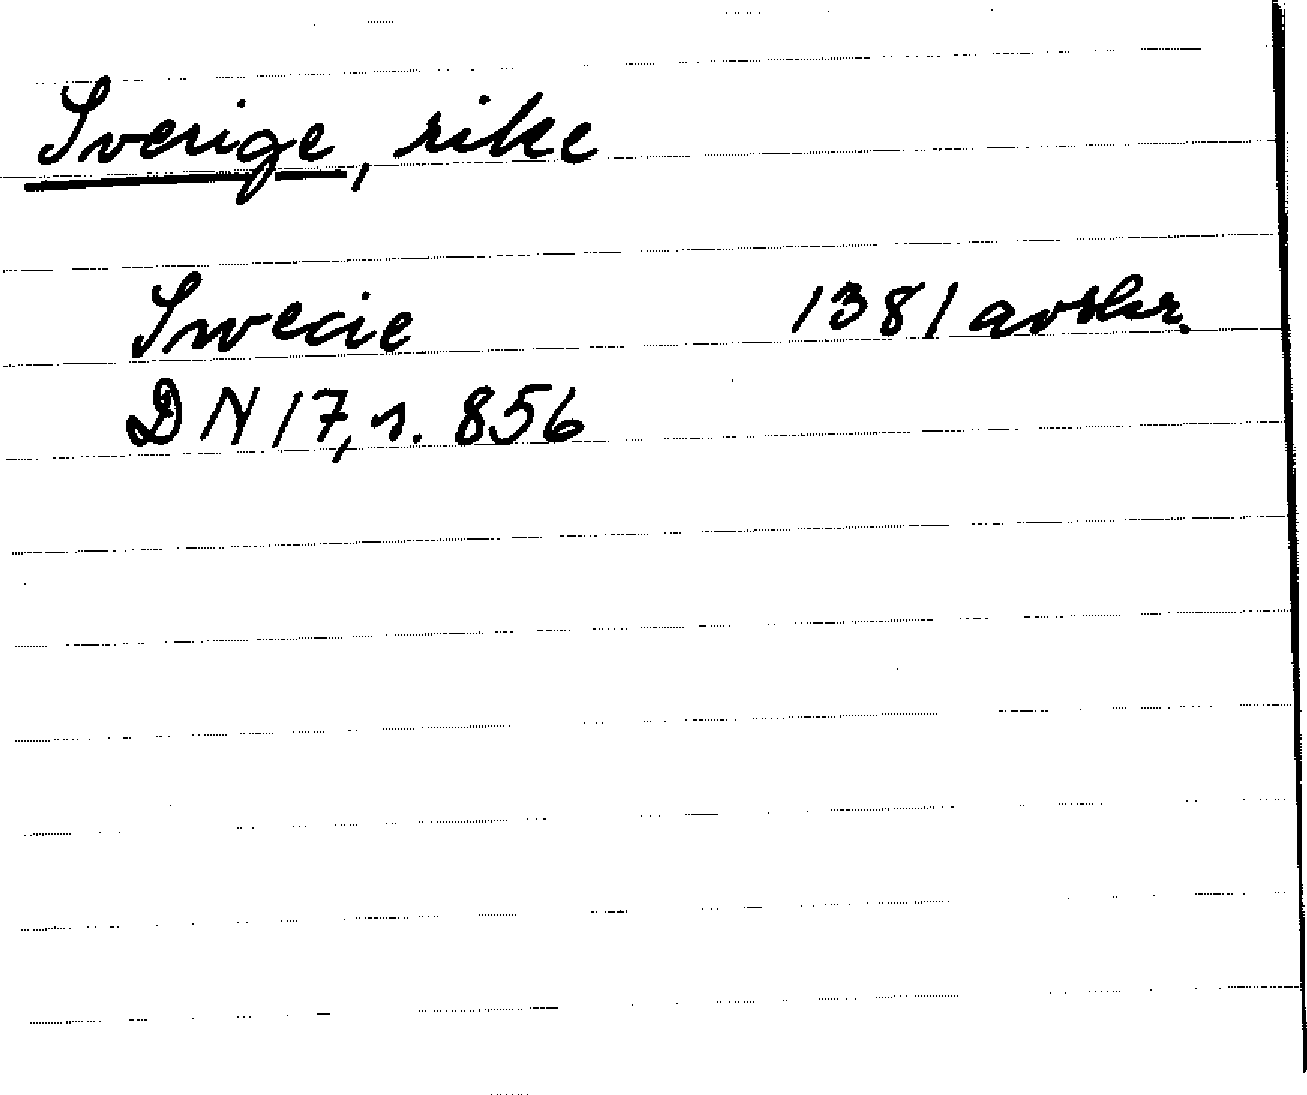 Sverige, rike
Swecie 1381 avskr.
DN 17, s. 856